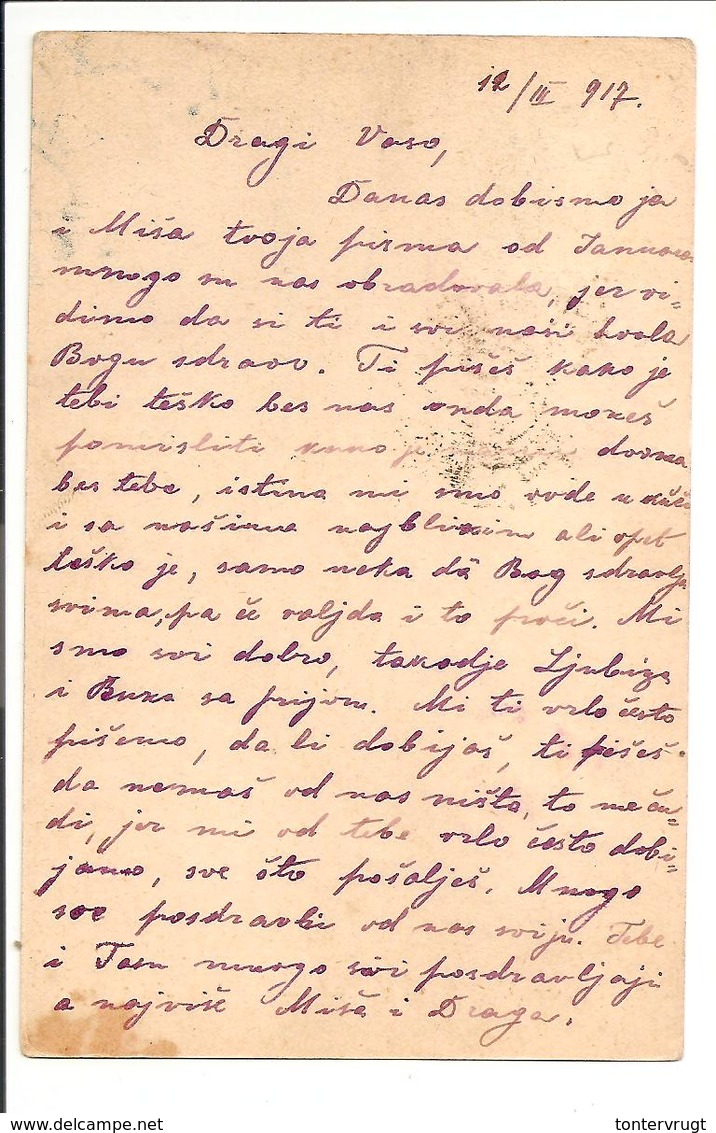 12/III 917.
Dragi Vaso,
Danas dobismo ja
i Miša tvoja pisma od Januara
mnogo su nas obradovala, jer vi-
dimo da si ti i svi naši hvala
Bogu sdravo. Ti pišeš kako je
tebi teško bes nas onda možeš
pomisliti kako je dvoma
bes tebe, istina mi smo ovde u kući
i sa našima najbližim ali opet
teško je, samo neka dâ Bog sdravlja
svima, pa će valjda i to proći. Mi
smo svi dobro, takodje Ljubiza
i Buka sa prijom. Mi ti vrlo često
pišemo, da li dobijaš, ti pišeš
da nemaš od nas ništa, to me ču-
di, jer mi od tebe vrlo često dobi-
jamo, sve što pošalješ. Mnogo
ste posdravlji od nas sviju. Tebe
i Tasu mnogo svi posdravljaju
a najviše Miša i Draga.
www.delcampe.net
tontervrugt